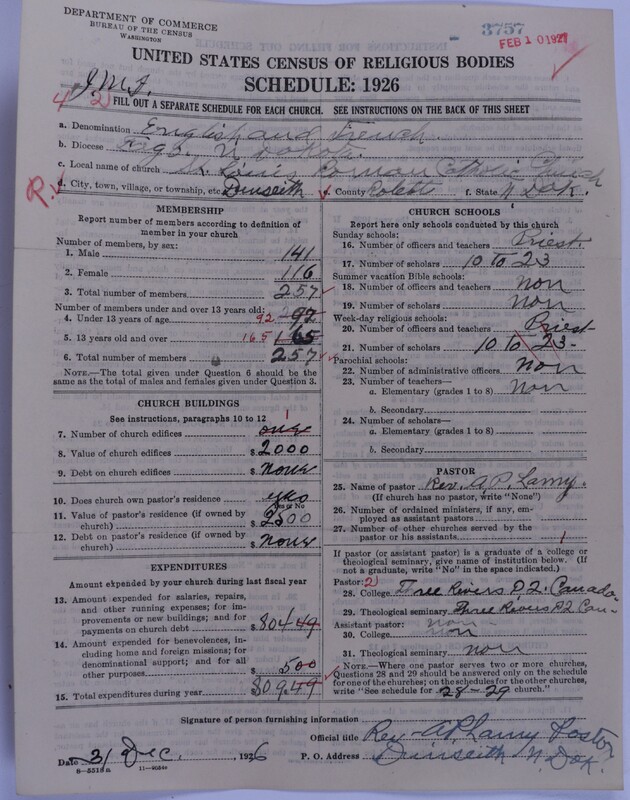 DEPARTMENT OF COMMERCE
BUREAU OF THE CENSUS
WASHINGTON
3757
FEB 10 1927
UNITED STATES CENSUS OF RELIGIOUS BODIES
SCHEDULE: 1926
FILL OUT A SEPARATE SCHEDULE FOR EACH CHURCH. SEE INSTRUCTIONS ON THE BACK OF THIS SHEET
a. Denomination English and French.
b. Diocese N Dakota.
c. Local name of church Roman Catholic Church
d. City, town, village, or township, etc. Dunseith e. County Rolette f. State N. Dak.
MEMBERSHIP
Report number of members according to definition of member in your church
Number of members, by sex:
1. Male 141
2. Female 116
3. Total number of members 257
Number of members under and over 13 years old:
4. Under 13 years of age 92 92
5. 13 years old and over 165 165
6. Total number of members 257
NOTE.—The total given under Question 6 should be the same as the total of males and females given under Question 3.
CHURCH BUILDINGS
See instructions, paragraphs 10 to 12
7. Number of church edifices 1
8. Value of church edifices $ 2000
9. Debt on church edifices $ None
10. Does church own pastor's residence yes
Yes or No
11. Value of pastor's residence (if owned by church) $ 2500
12. Debt on pastor's residence (if owned by church) $ None
EXPENDITURES
Amount expended by your church during last fiscal year
13. Amount expended for salaries, repairs, and other running expenses; for improvements or new buildings; and for payments on church debt $ 804 49
14. Amount expended for benevolences, including home and foreign missions; for denominational support; and for all other purposes $ 500
15. Total expenditures during year $ 809.49
CHURCH SCHOOLS
Report here only schools conducted by this church
Sunday schools:
16. Number of officers and teachers Priest.
17. Number of scholars 10 to 23
Summer vacation Bible schools:
18. Number of officers and teachers non
19. Number of scholars non
Week-day religious schools:
20. Number of officers and teachers Priest
21. Number of scholars 10 to 23-
Parochial schools:
22. Number of administrative officers non
23. Number of teachers—
a. Elementary (grades 1 to 8) non
b. Secondary
24. Number of scholars—
a. Elementary (grades 1 to 8)
b. Secondary
PASTOR
25. Name of pastor Rev. A.P. Lamy.
(If church has no pastor, write "None")
26. Number of ordained ministers, if any, employed as assistant pastors
27. Number of other churches served by the pastor or his assistants 1
If pastor (or assistant pastor) is a graduate of a college or theological seminary, give name of institution below. (If not a graduate, write "No" in the space indicated.)
Pastor:
28. College Three Rivers P2. Canada.
29. Theological seminary Three Rivers P2 Can
Assistant pastor: non
30. College non
31. Theological seminary non
NOTE.—Where one pastor serves two or more churches, Questions 28 and 29 should be answered only on the schedule for one of the churches; on the schedules for the other churches, write "See schedule for 28-29 church."
Signature of person furnishing information
Official title Rev. A.P. Lamy Pastor
Date 31 Dec., 1926 P. O. Address Dunseith N. Dak.
8—5518a 11—9534